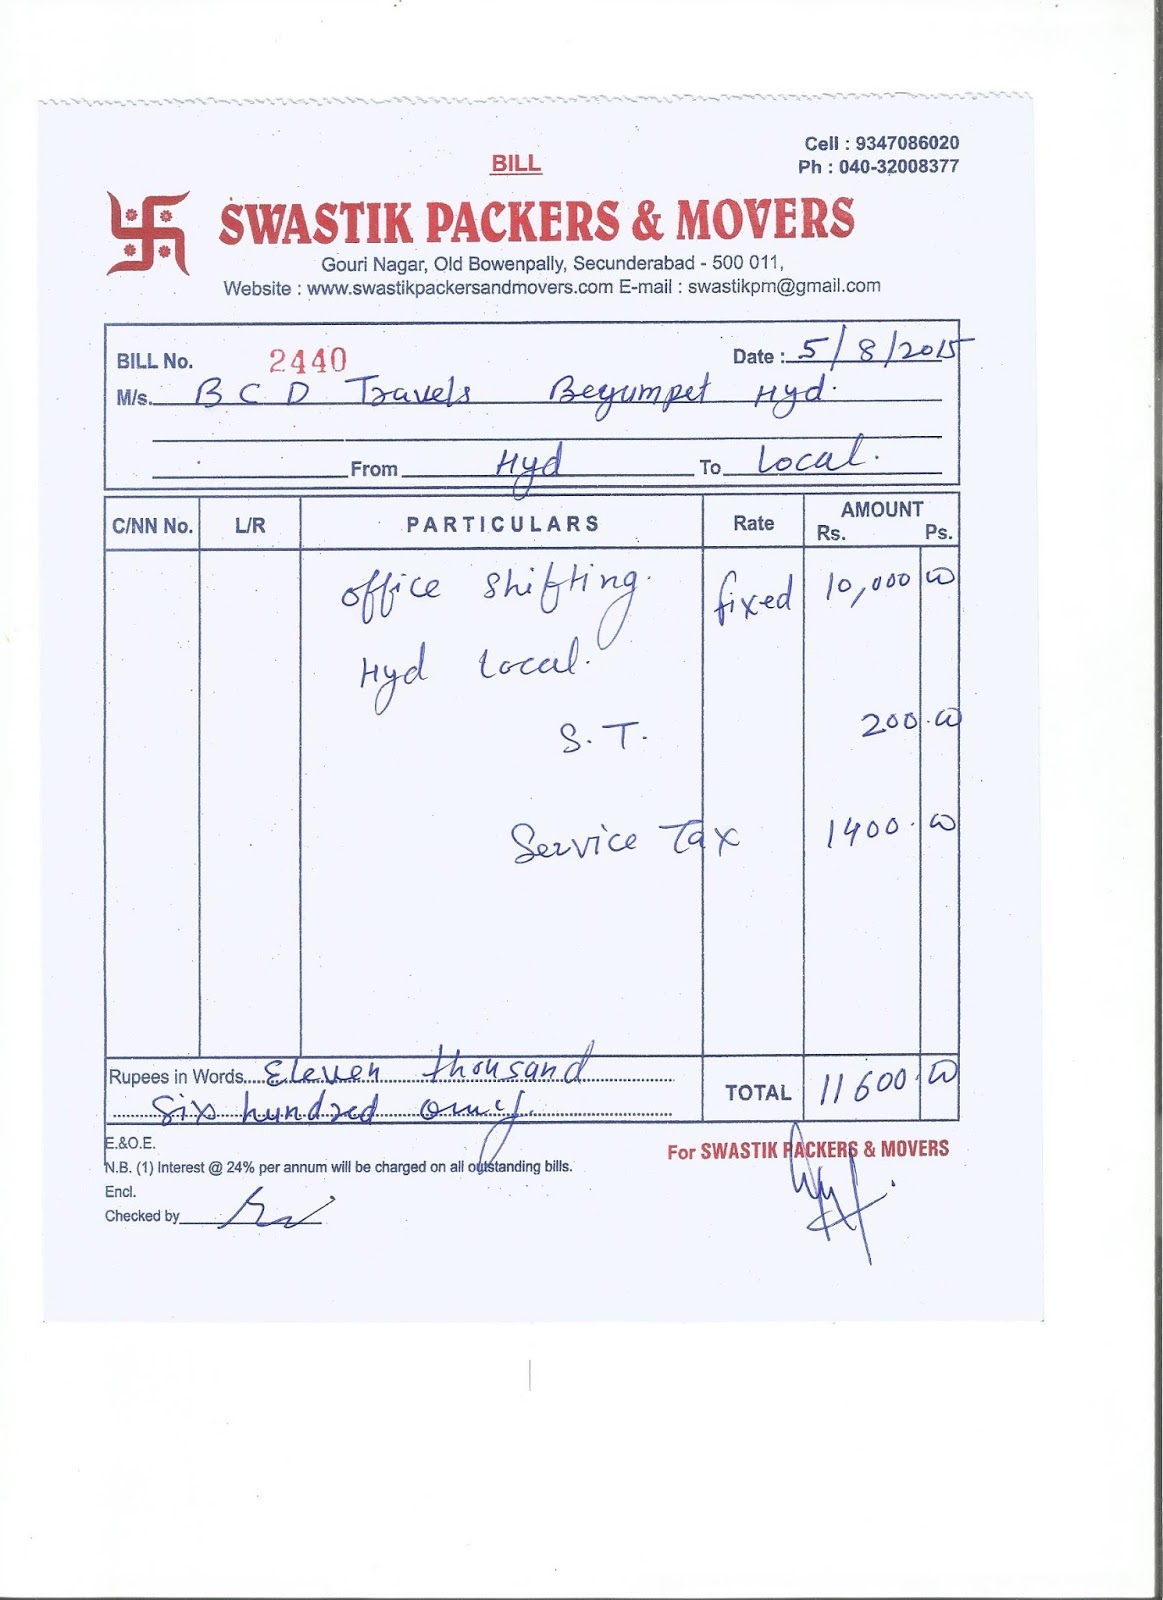 Cell : 9347086020
BILL
Ph : 040-32008377
SWASTIK PACKERS & MOVERS
Gouri Nagar, Old Bowenpally, Secunderabad - 500 011,
Website : www.swastikpackersandmovers.com E-mail : swastikpm@gmail.com
BILL No. 2440 Date : 5/8/2015
M/s. B C D Travels Begumpet Hyd.
From Hyd To Local.
C/NN No. L/R PARTICULARS Rate AMOUNT
Rs. Ps.
office shifting. fixed 10,000 00
Hyd Local.
S.T. 200.00
Service Tax 1400.00
Rupees in Words Eleven thousand
six hundred only. TOTAL 11600.00
E.&O.E.
For SWASTIK PACKERS & MOVERS
N.B. (1) Interest @ 24% per annum will be charged on all outstanding bills.
Encl.
Checked by